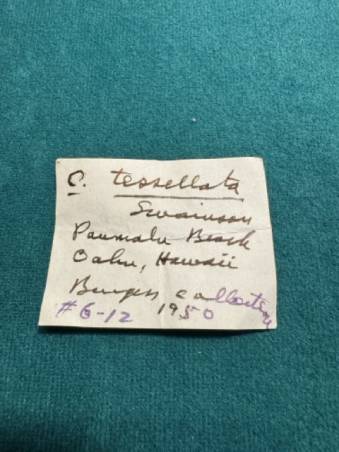 C. tessellata
Swainson
Paumalu Beach
Oahu, Hawaii
Burgess collection
#6-12 1950